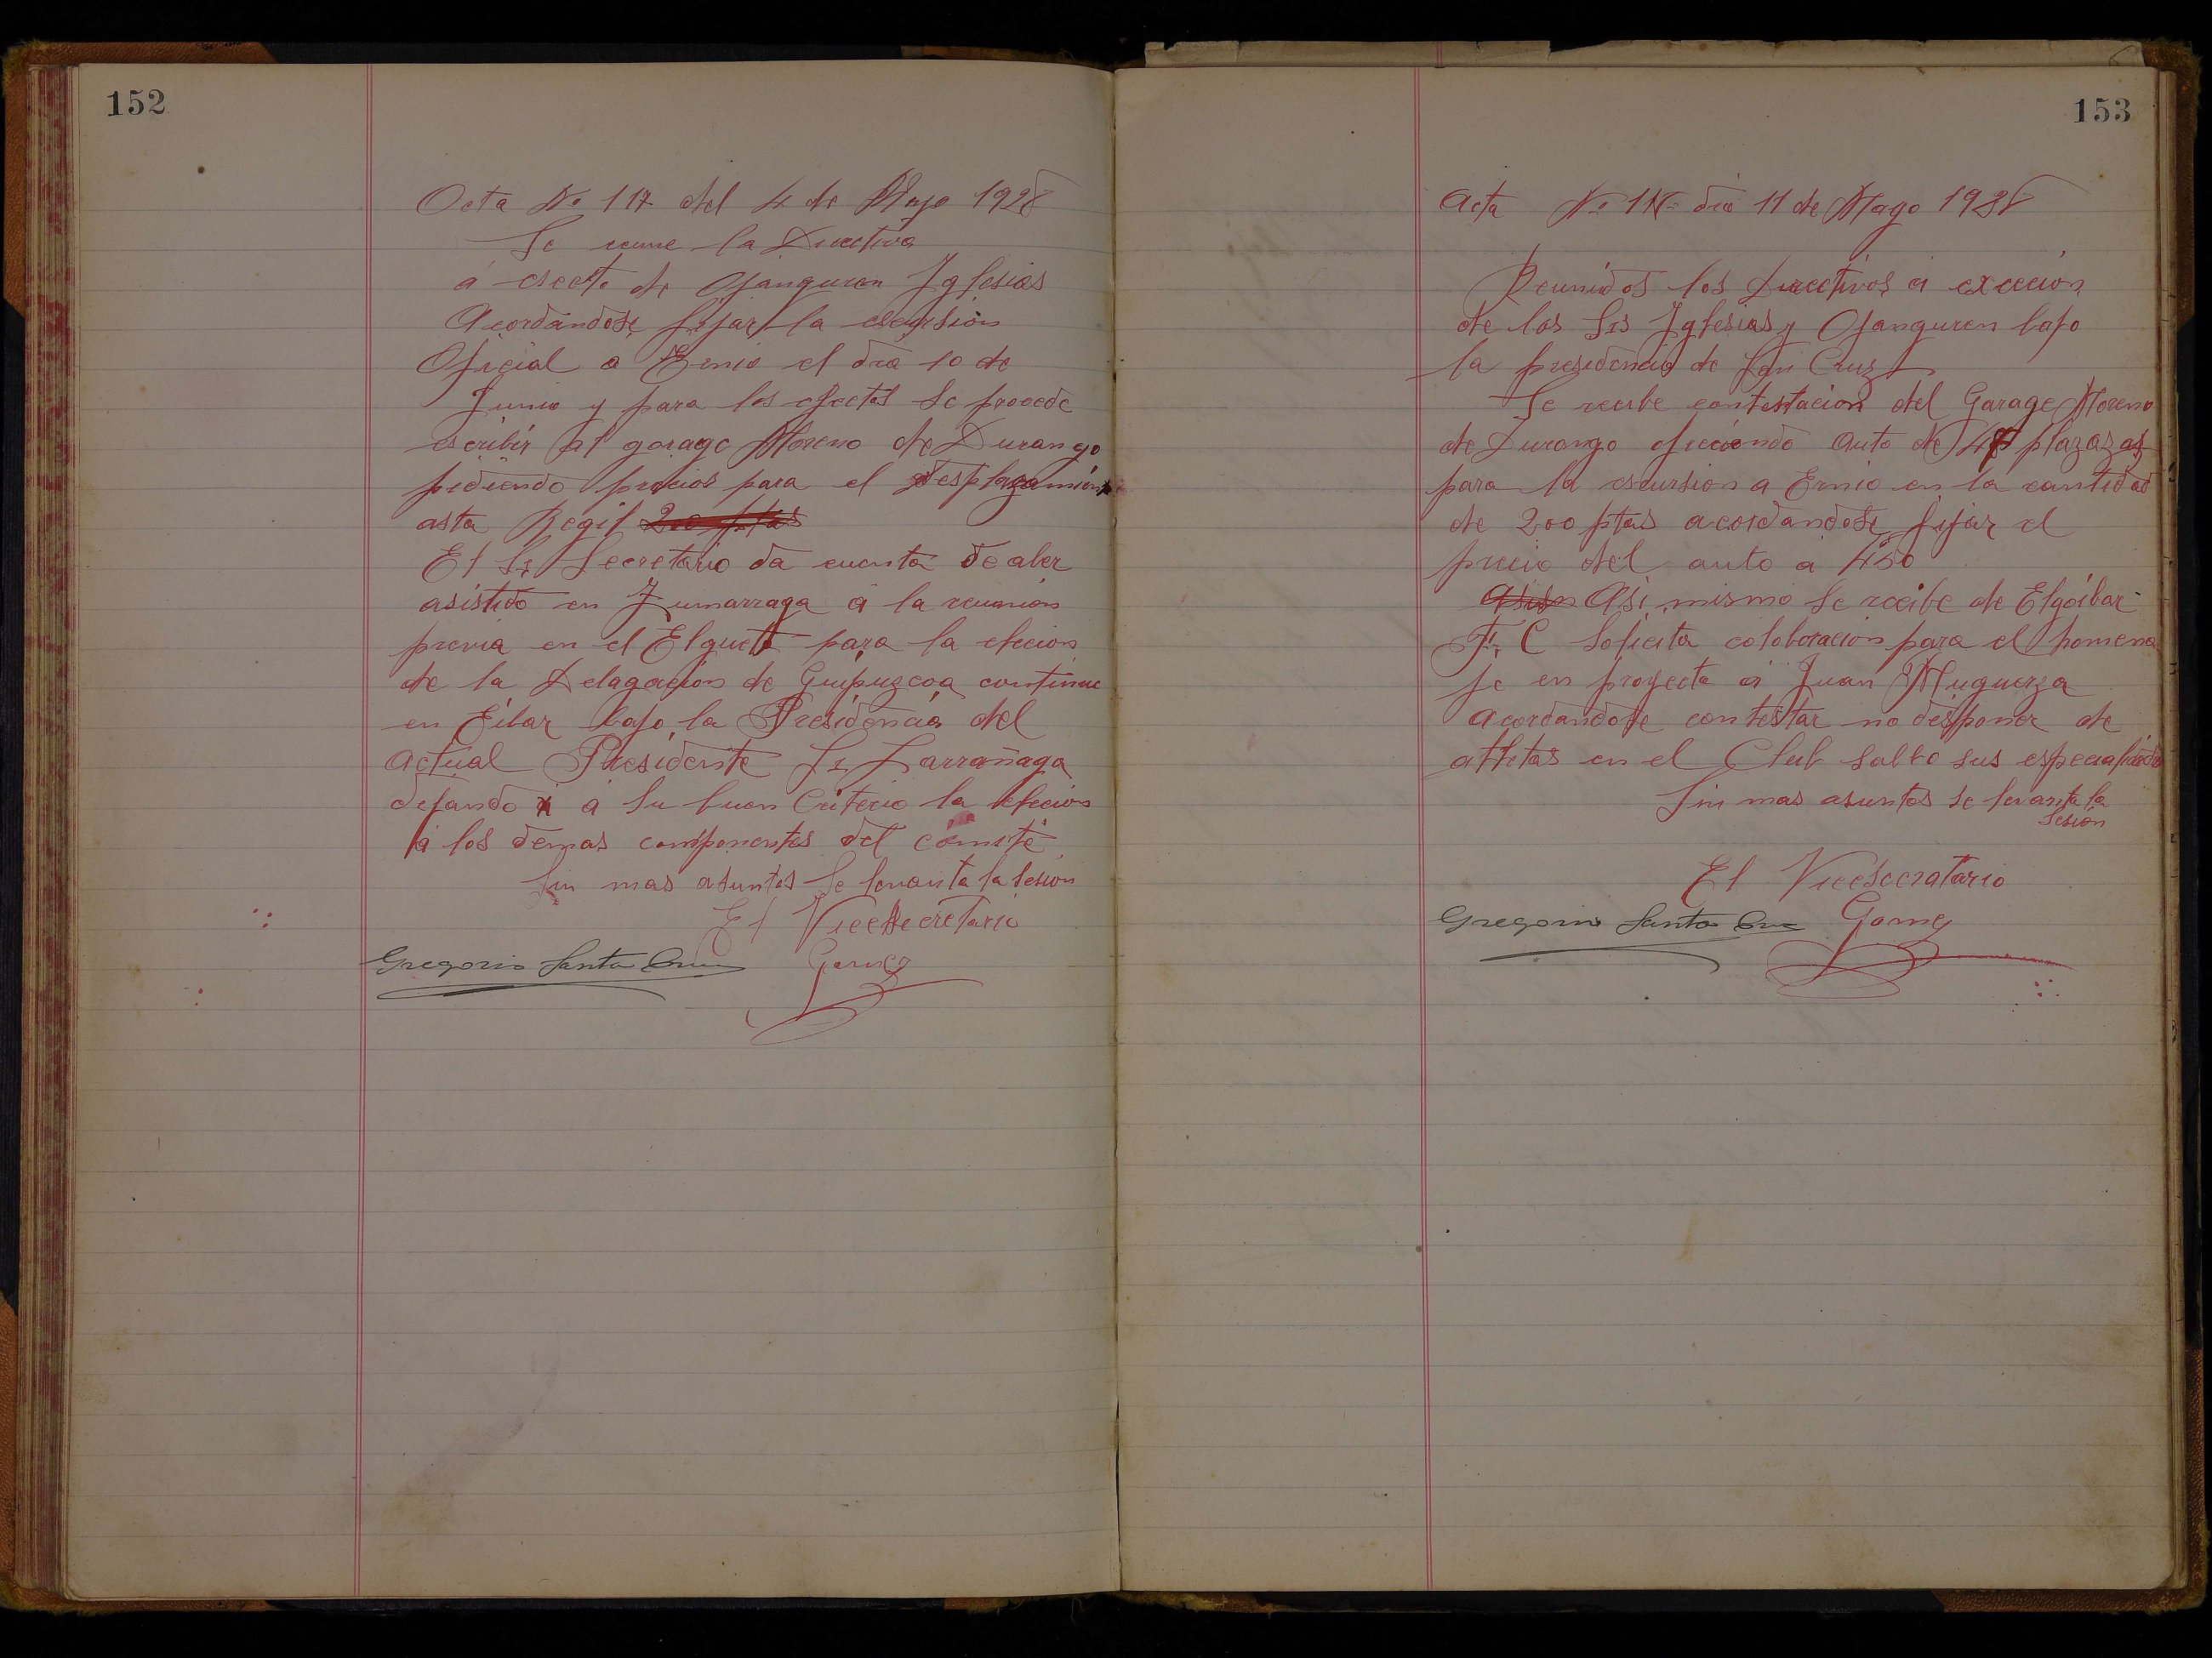 152
Acta Nº 117 del 4 de Mayo 1928
Se reune la Directiva
a esceto de Ojanguren Iglesias
Acordandose fijar la escursion
Oficial a Ernio el dia 10 de
Junio y para los efectos se procede
escribir al garage Moreno de Durango
pidiendo precios para el desplazamiento
asta Regil 200 ptas
El Sr Secretario da cuenta de aber
asistido en Zumarraga a la reunion
previa en el Elgueta para la elecion
de la Delagacion de Guipuzcoa continue
en Eibar bajo la Presidencia del
actual Presidente Sr Larrañaga
dejando a su buen Criterio la elecion
a los demas componentes del comité
Sin mas asuntos se levanta la sesion
El Vicesecretario
Gregorio Santa Cruz Gomez
153
Acta Nº 118 dia 11 de Mayo 1928
Reunidos los Directivos a excecion
de los Srs Iglesias y Ojanguren bajo
la presidencia de San Cruz
Se recibe contestacion del Garage Moreno
de Durango ofreciendo auto de 47 plazas
para la escursion a Ernio en la cantidad
de 200 ptas acordandose fijar el
precio del auto a 4'50
Asi mismo se recibe de Elgoibar
F. C solicita coloboracion para el homena
je en proyecto a Juan Muguerza
acordandose contestar no disponer de
atletas en el Club salbo sus especialidades
Sin mas asuntos se levanta la
sesion
El Vicesecratario
Gregorio Santa Cruz Gomez